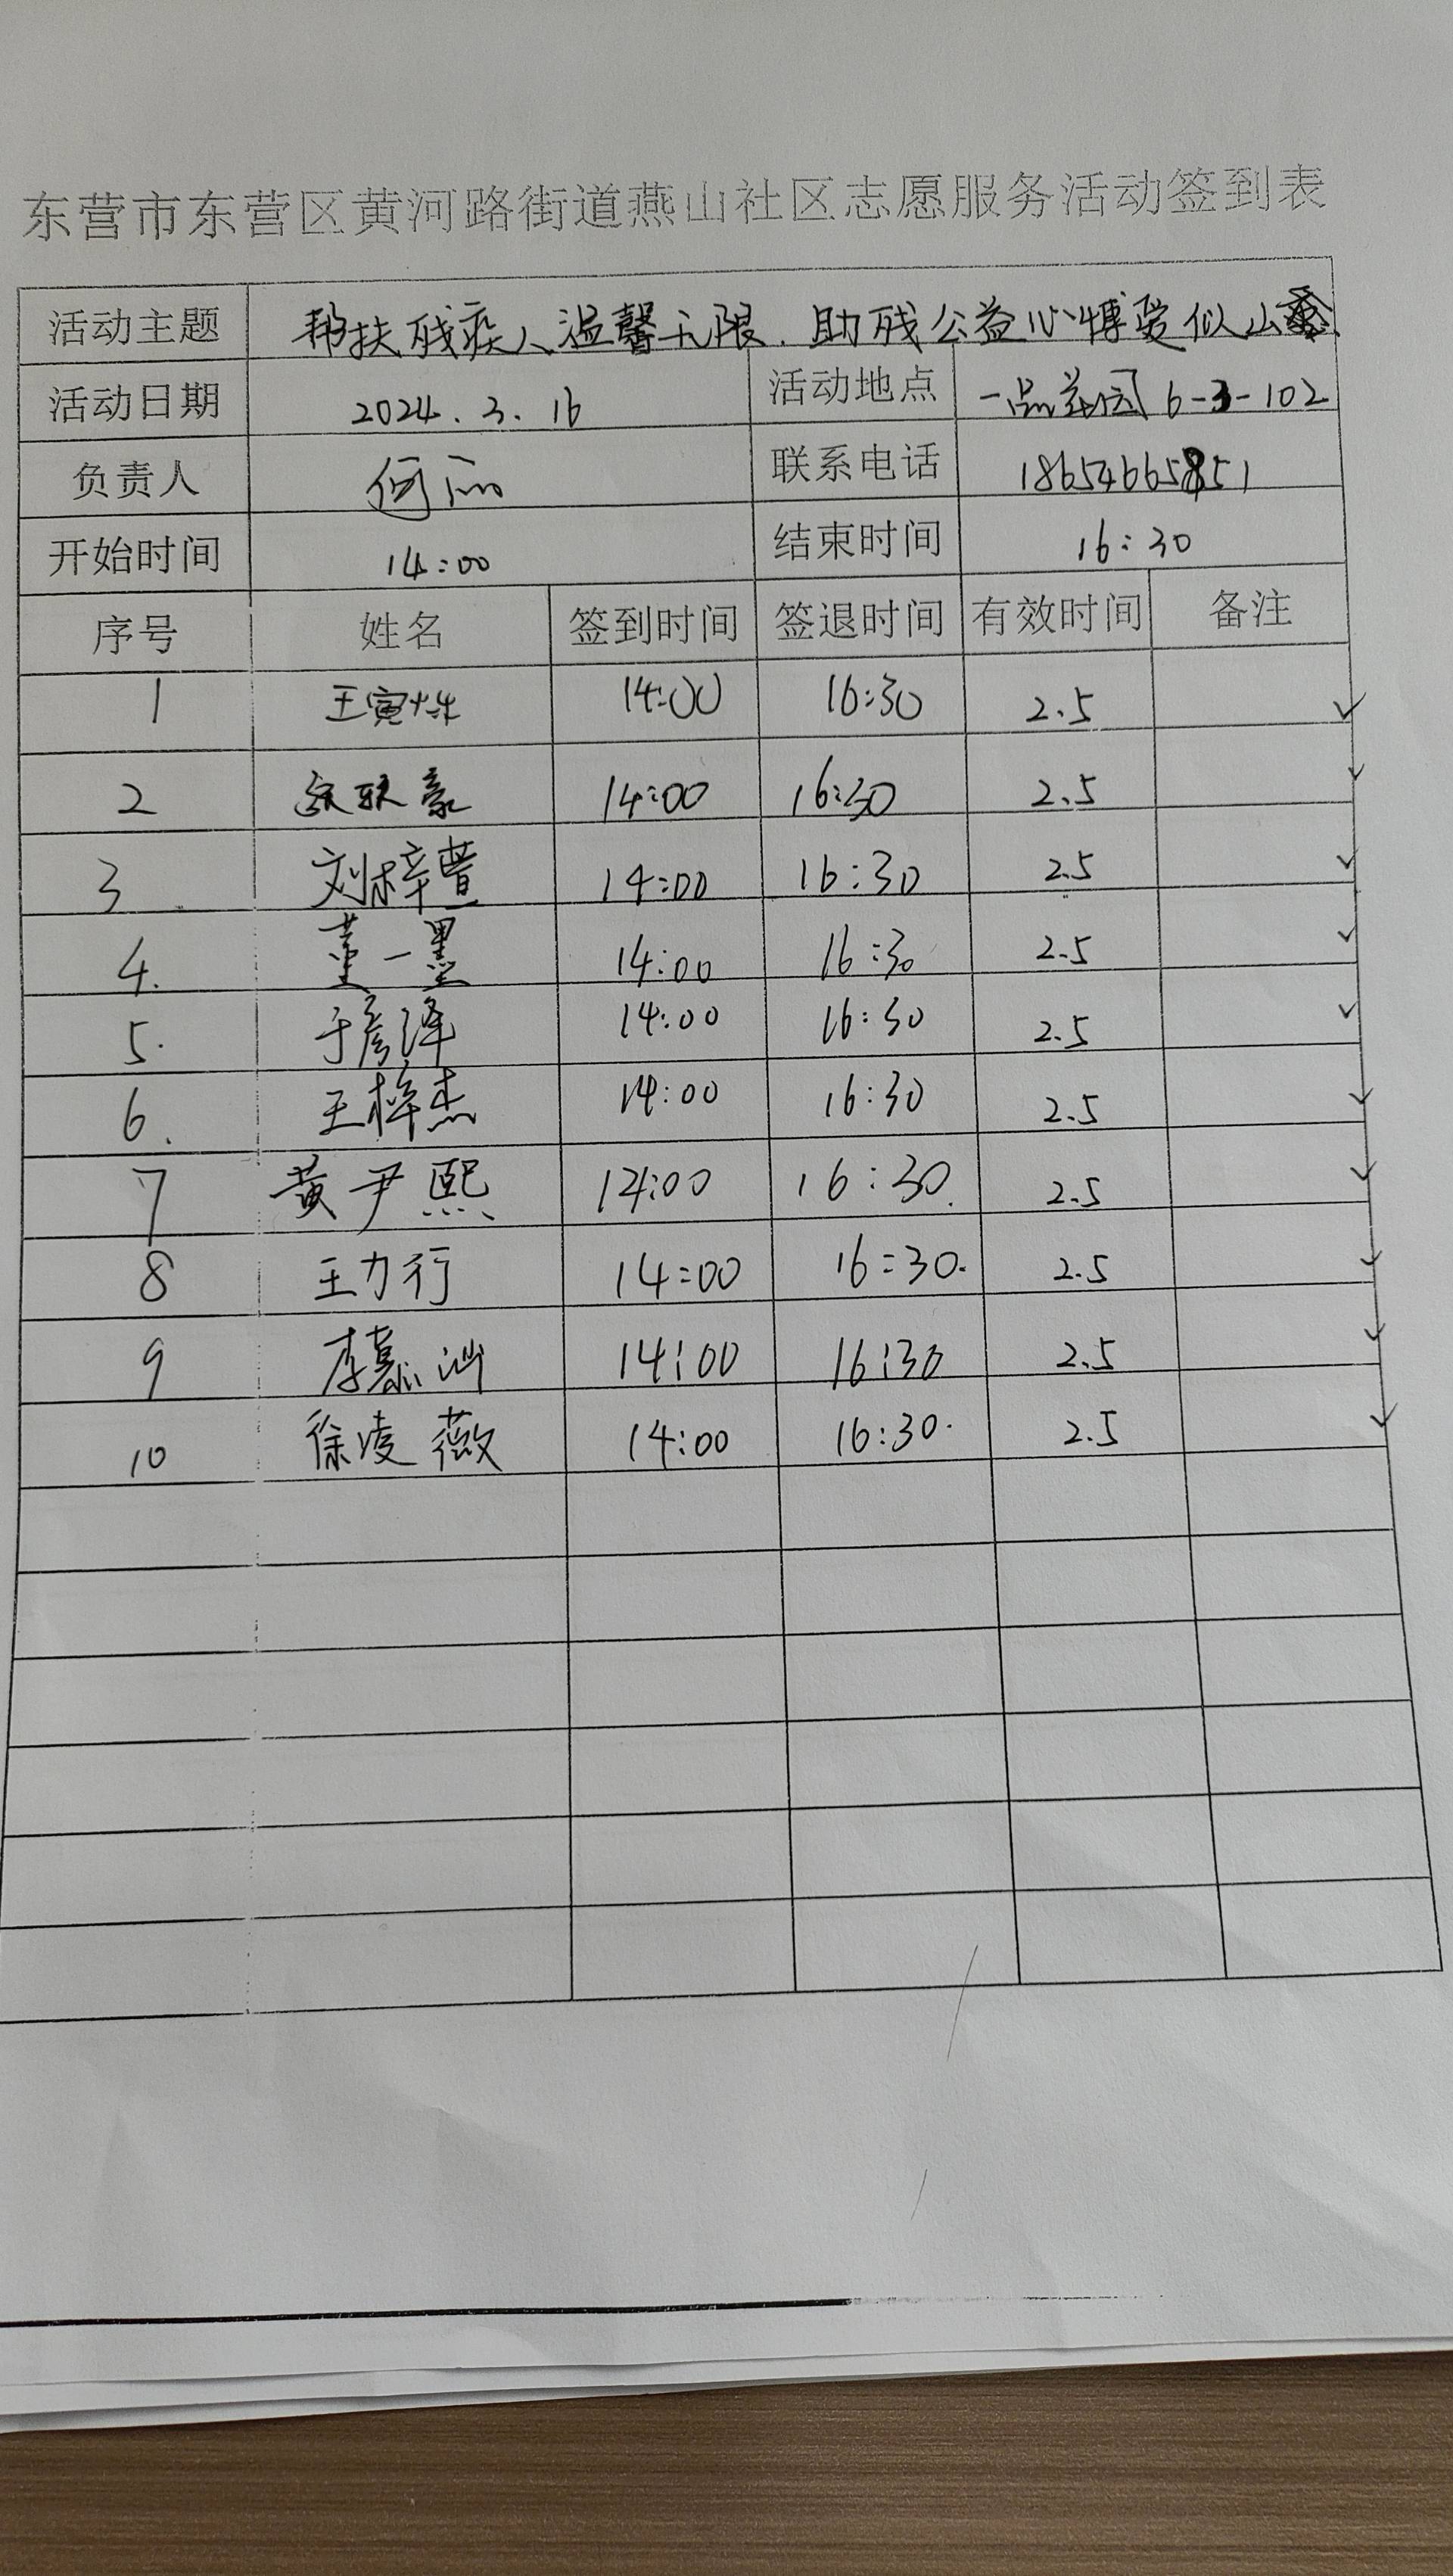 东营市东营区黄河路街道燕山社区志愿服务活动签到表
活动主题 帮扶残疾人温馨无限.助残公益心博爱似山重
活动日期 2024.3.16 活动地点 一品 6-3-102
负责人 何丽 联系电话 18654665851
开始时间 14:00 结束时间 16:30
序号 姓名 签到时间 签退时间 有效时间 备注
1 王寅烨 14:00 16:30 2.5 ✓
2 14:00 16:30 2.5 ✓
3 刘梓萱 14:00 16:30 2.5 ✓
4. 董一墨 14:00 16:30 2.5 ✓
5. 于彦泽 14:00 16:30 2.5 ✓
6. 王梓杰 14:00 16:30 2.5 ✓
7 黄尹熙 14:00 16:30. 2.5 ✓
8 王力行 14:00 16:30. 2.5 ✓
9 李慕汕 14:00 16:30 2.5 ✓
10 徐凌薇 14:00 16:30. 2.5 ✓